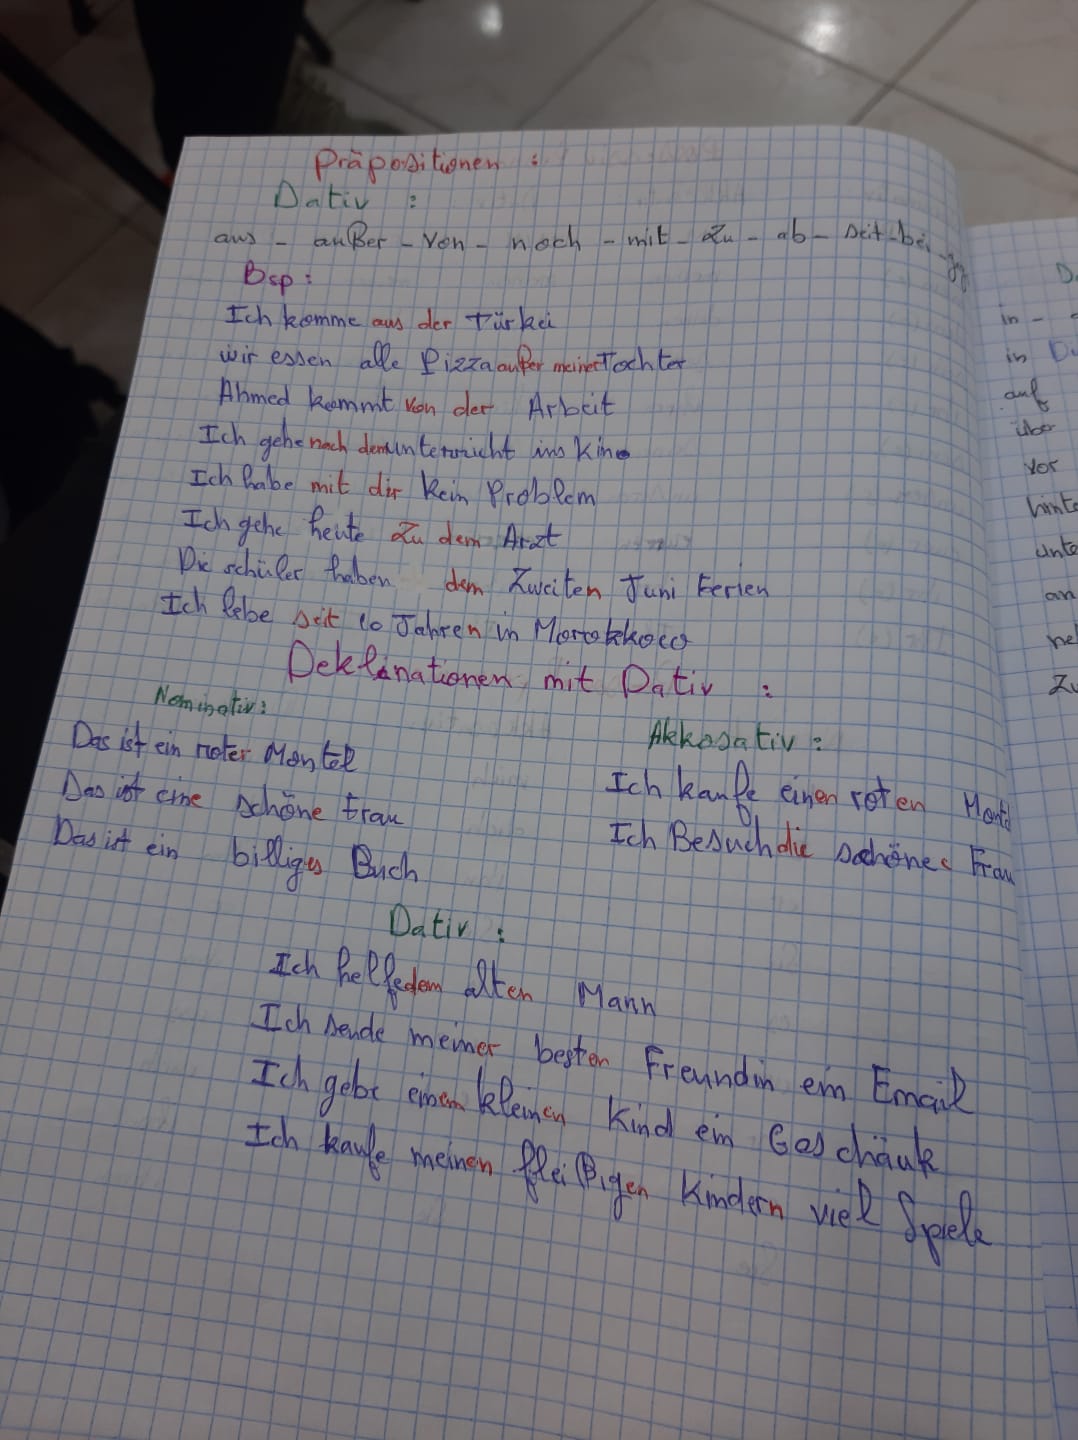 Präpositionen :
Dativ :
aus - außer - von - nach - mit - zu - ab - seit - bei
Bsp :
Ich komme aus der Türkei
wir essen alle Pizza außer meiner Tochter
Ahmed kommt von der Arbeit
Ich gehe nach dem unterricht ins kino
Ich habe mit dir kein Problem
Ich gehe heute zu dem Arzt
Die schüler haben dem zweiten Juni Ferien
Ich lebe seit 10 Jahren in
Deklinationen mit Dativ :
Nominativ :
Das ist ein roter Mantel
Das ist eine schöne Frau
Das ist ein billiges Buch
Akkosativ :
Ich kaufe einen roten
Ich Besuch die schöne Frau
Dativ :
Ich helfe dem alten Mann
Ich sende meiner besten Freundin ein Email
Ich gebe einem kleinen Kind ein Geschäuk
Ich kaufe meinen fleißigen Kindern viel Spiele
in -
in
auf
über
vor
hinte
unte
an
ne
Zu